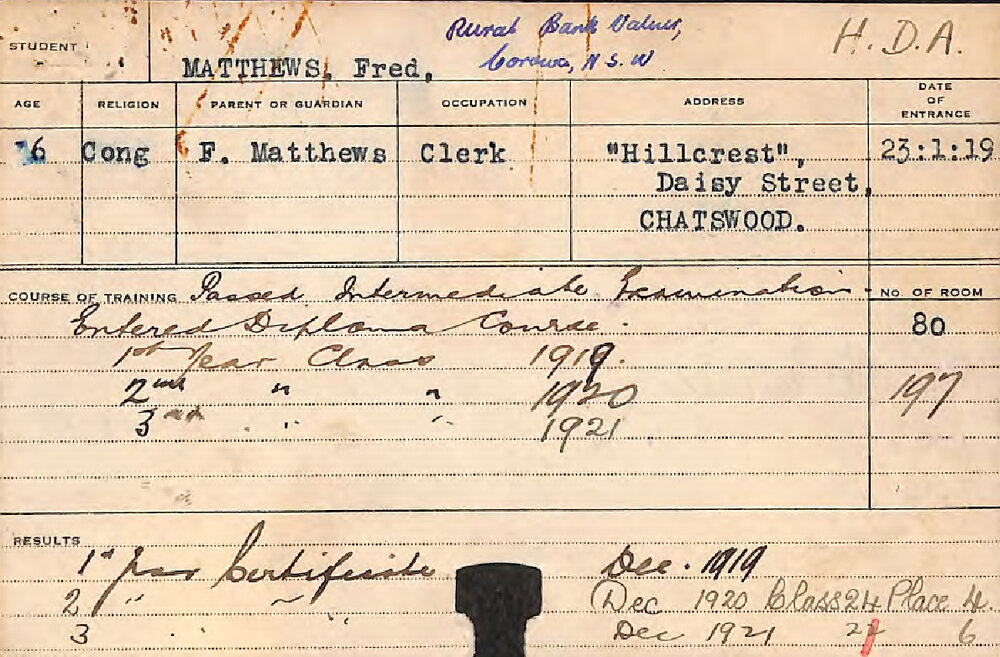 STUDENT
Rural Bank Valuer,
Corowa, N S. W
H. D. A.
MATTHEWS, Fred,
AGE RELIGION PARENT OR GUARDIAN OCCUPATION ADDRESS DATE OF ENTRANCE
16 Cong F. Matthews Clerk "Hillcrest", 23:1:19
Daisy Street,
CHATSWOOD.
COURSE OF TRAINING Passed Intermediate Examination. No OF ROOM
Entered Diploma Course. 80
1st Year Class 1919.
2nd " " 1920 197
3rd " " 1921
RESULTS
1st Year Certificate Dec. 1919
2 " " Dec 1920 Class 24 Place 4.
3 " " Dec 1921 6